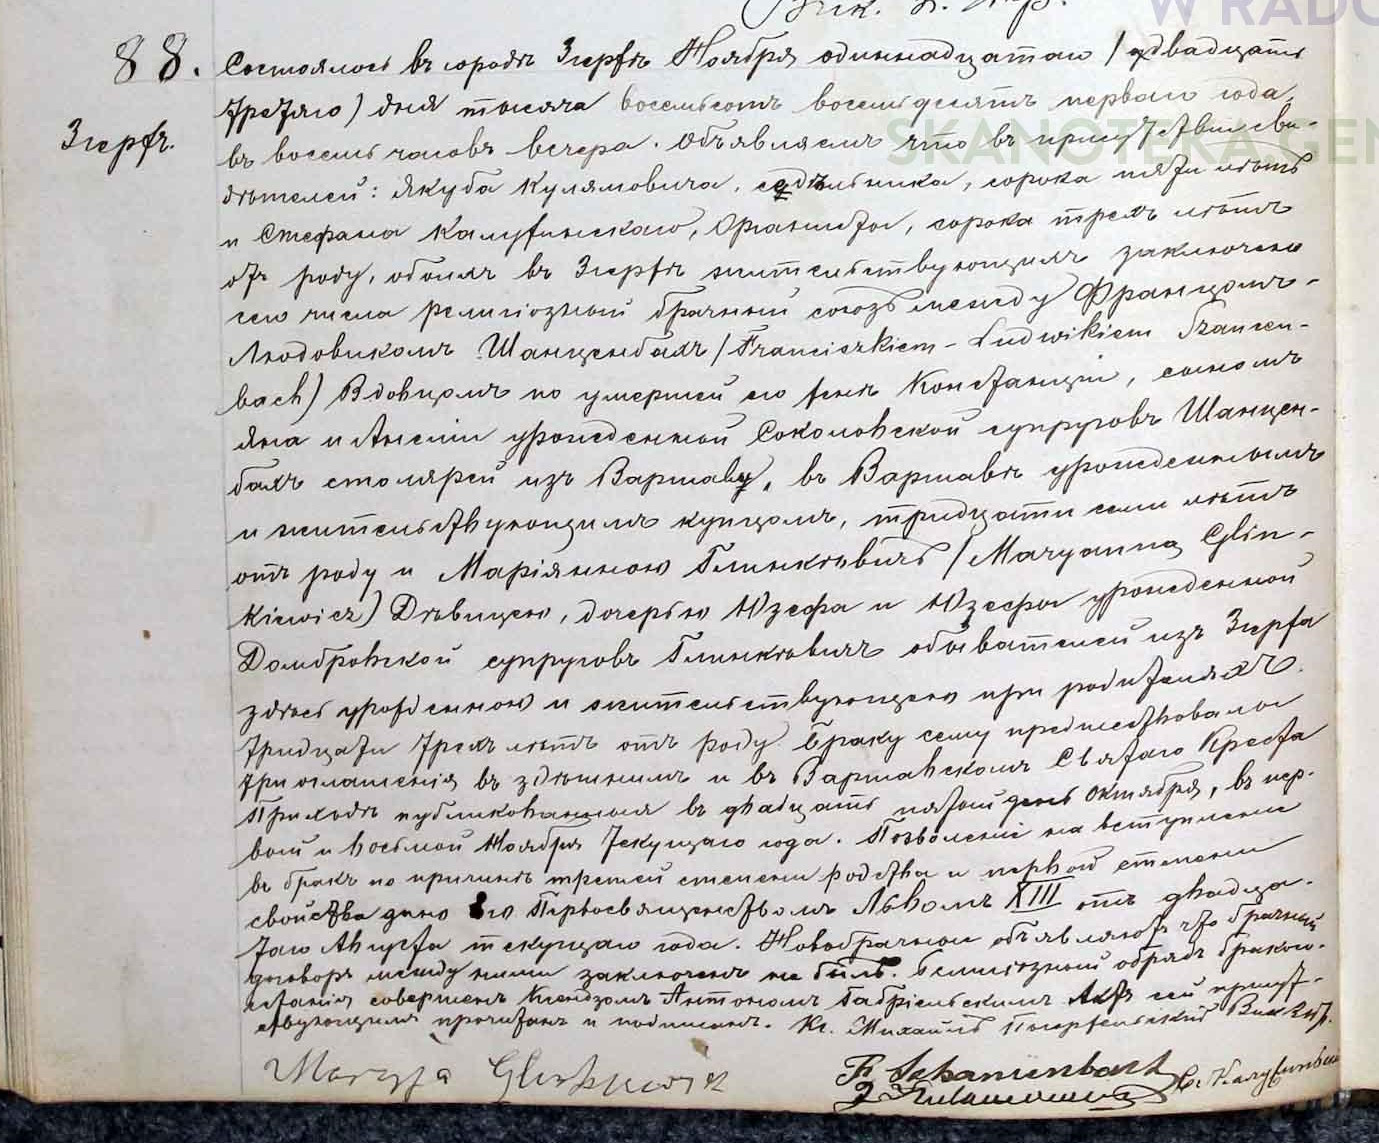 W RADO
SKANOTEKA GEN
88.
Згерж.
Состоялось въ городѣ Згержѣ Ноября одиннадцатаго / двадцать
третяго) дня тысяча восемьсотъ восемьдесятъ перваго года,
въ восемь часовъ вечера. Объявляемъ что въ присутствіи сви-
дѣтелей: Якуба Кулямовича, сѣдѣльника, сорока пяти лѣтъ
и Стефана Калужинскаго, Органиста, сорока трехъ лѣтъ
отъ роду, обоихъ въ Згержѣ жительствующихъ заключено
сего числа религіозный брачный союзъ между Францомъ-
Людовикомъ Шанценбахъ / Franciszkiem-Ludwikiem Szancen-
bach) Вдовцомъ по умершей его женѣ Констанціи, сыномъ
Яна и Анели урожденной Соколовской супруговъ Шанцен-
бахъ столярей изъ Варшавы, въ Варшавѣ урожденнымъ
и жительствующимъ купцомъ, тридцати семи лѣтъ
отъ роду и Маріянною Глинкѣвичъ / Maryanną Glin-
kiewicz) Дѣвицею, дочерью Юзефа и Юзефы урожденной
Домбровской супруговъ Глинкѣвичъ обывателей изъ Згержа
здѣсь урожденною и жительствующею при родителяхъ.
тридцати трехъ лѣтъ отъ роду. Браку сему предшествовали
три оглашенія въ здѣшнимъ и въ Варшавскомъ Святаго Креста
Приходѣ публикованныя въ двадцать пятый день Октября, въ пер-
вой и восьмой Ноября текущаго года. Позволеніе на вступленіе
въ бракъ по причинѣ третей степени родства и первой степени
свойства дано Его Первосвященствомъ Львомъ XIII отъ двадца-
таго Августа текущаго года. Новобрачные объявляютъ что брачный
договоръ между ними заключенъ не былъ. Религіозный обрядъ бракосо-
четанія совершенъ Ксендзомъ Антономъ Габріельскимъ Актъ сей присут-
ствующимъ прочитанъ и подписанъ. Кс. Михаилъ
Maryja Glinkiewicz
F. Schanzenbach
J. Kulamowicz